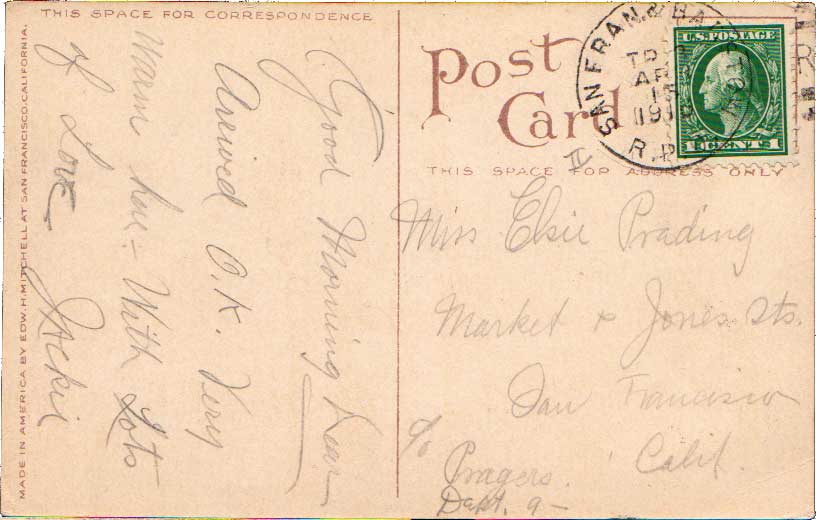 THIS SPACE FOR CORRESPONDENCE
Good Morning Dear
Arrived O.K. Very
Warm here - With Lots
of Love Jackie
MADE IN AMERICA BY EDW. H. MITCHELL AT SAN FRANCISCO, CALIFORNIA.
Post
Card
THIS SPACE FOR ADDRESS ONLY
SAN FRAN. &
R.P.
U.S. POSTAGE
1 CENT 1
Miss Elsie Prading
Market & Jones Sts.
San Francisco
Calif.
c/o
Pragers.
Dept. 9-